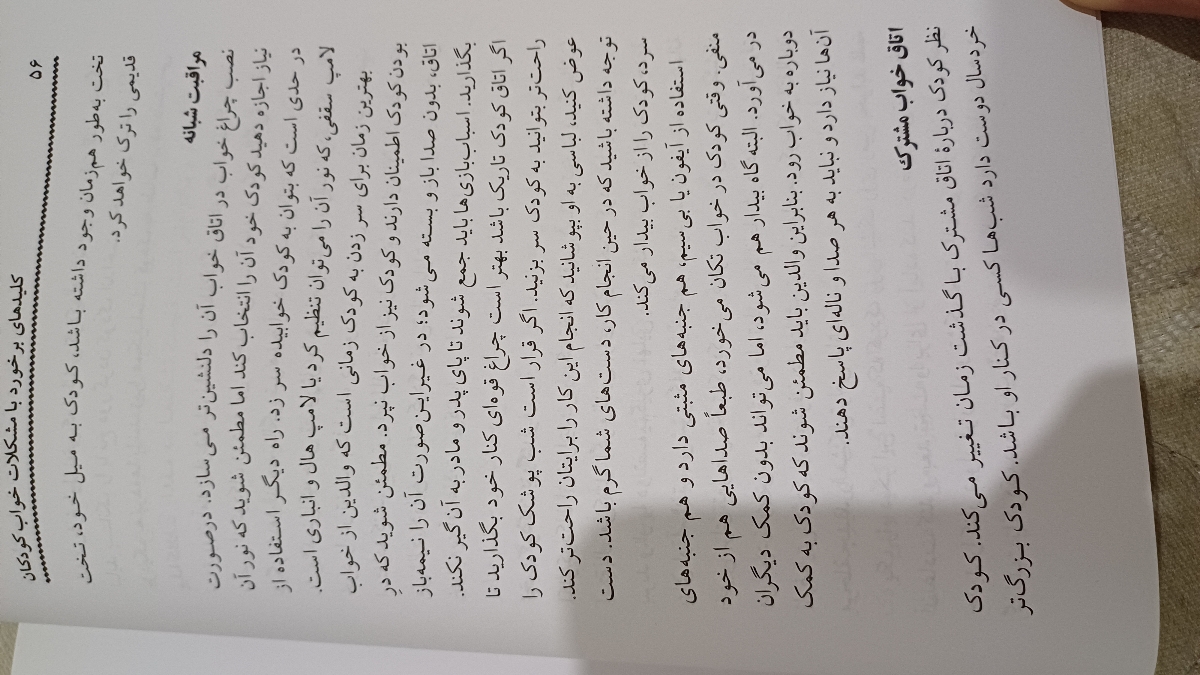 ۵۶
کلیدهای برخورد با مشکلات خواب کودکان
تخت به‌طور هم‌زمان وجود داشته باشد، کودک به میل خود، تخت
قدیمی را ترک خواهد کرد.
مراقبت شبانه
نصب چراغ خواب در اتاق خواب آن را دلنشین‌تر می‌سازد. درصورت
نیاز اجازه دهید کودک خود آن را انتخاب کند اما مطمئن شوید که نور آن
در حدی است که بتوان به کودک خوابیده سر زد. راه دیگر استفاده از
لامپ سقفی، که نور آن را می‌توان تنظیم کرد یا لامپ هال و انباری است.
بهترین زمان برای سر زدن به کودک زمانی است که والدین از خواب
بودن کودک اطمینان دارند و کودک نیز از خواب نپرد. مطمئن شوید که درِ
اتاق، بدون صدا باز و بسته می‌شود؛ در غیر این‌صورت آن را نیمه‌باز
بگذارید. اسباب‌بازی‌ها باید جمع شوند تا پای پدر و مادر به آن گیر نکند.
اگر اتاق کودک تاریک باشد بهتر است چراغ قوه‌ای کنار خود بگذارید تا
راحت‌تر بتوانید به کودک سر بزنید. اگر قرار است شب پوشک کودک را
عوض کنید، لباسی به او بپوشانید که انجام این کار را برایتان راحت‌تر کند.
توجه داشته باشید که در حین انجام کار، دست‌های شما گرم باشد. دست
سرد، کودک را از خواب بیدار می‌کند.
استفاده از آیفون یا بی‌سیم، هم جنبه‌های مثبتی دارد و هم جنبه‌های
منفی. وقتی کودک در خواب تکان می‌خورد، طبعاً صداهایی هم از خود
در می‌آورد. البته گاه بیدار هم می‌شود، اما می‌تواند بدون کمک دیگران
دوباره به خواب رود. بنابراین والدین باید مطمئن شوند که کودک به کمک
آن‌ها نیاز دارد و نباید به هر صدا و ناله‌ای پاسخ دهند.
اتاق خواب مشترک
نظر کودک دربارهٔ اتاق مشترک با گذشت زمان تغییر می‌کند. کودک
خردسال دوست دارد شب‌ها کسی در کنار او باشد. کودک بزرگ‌تر